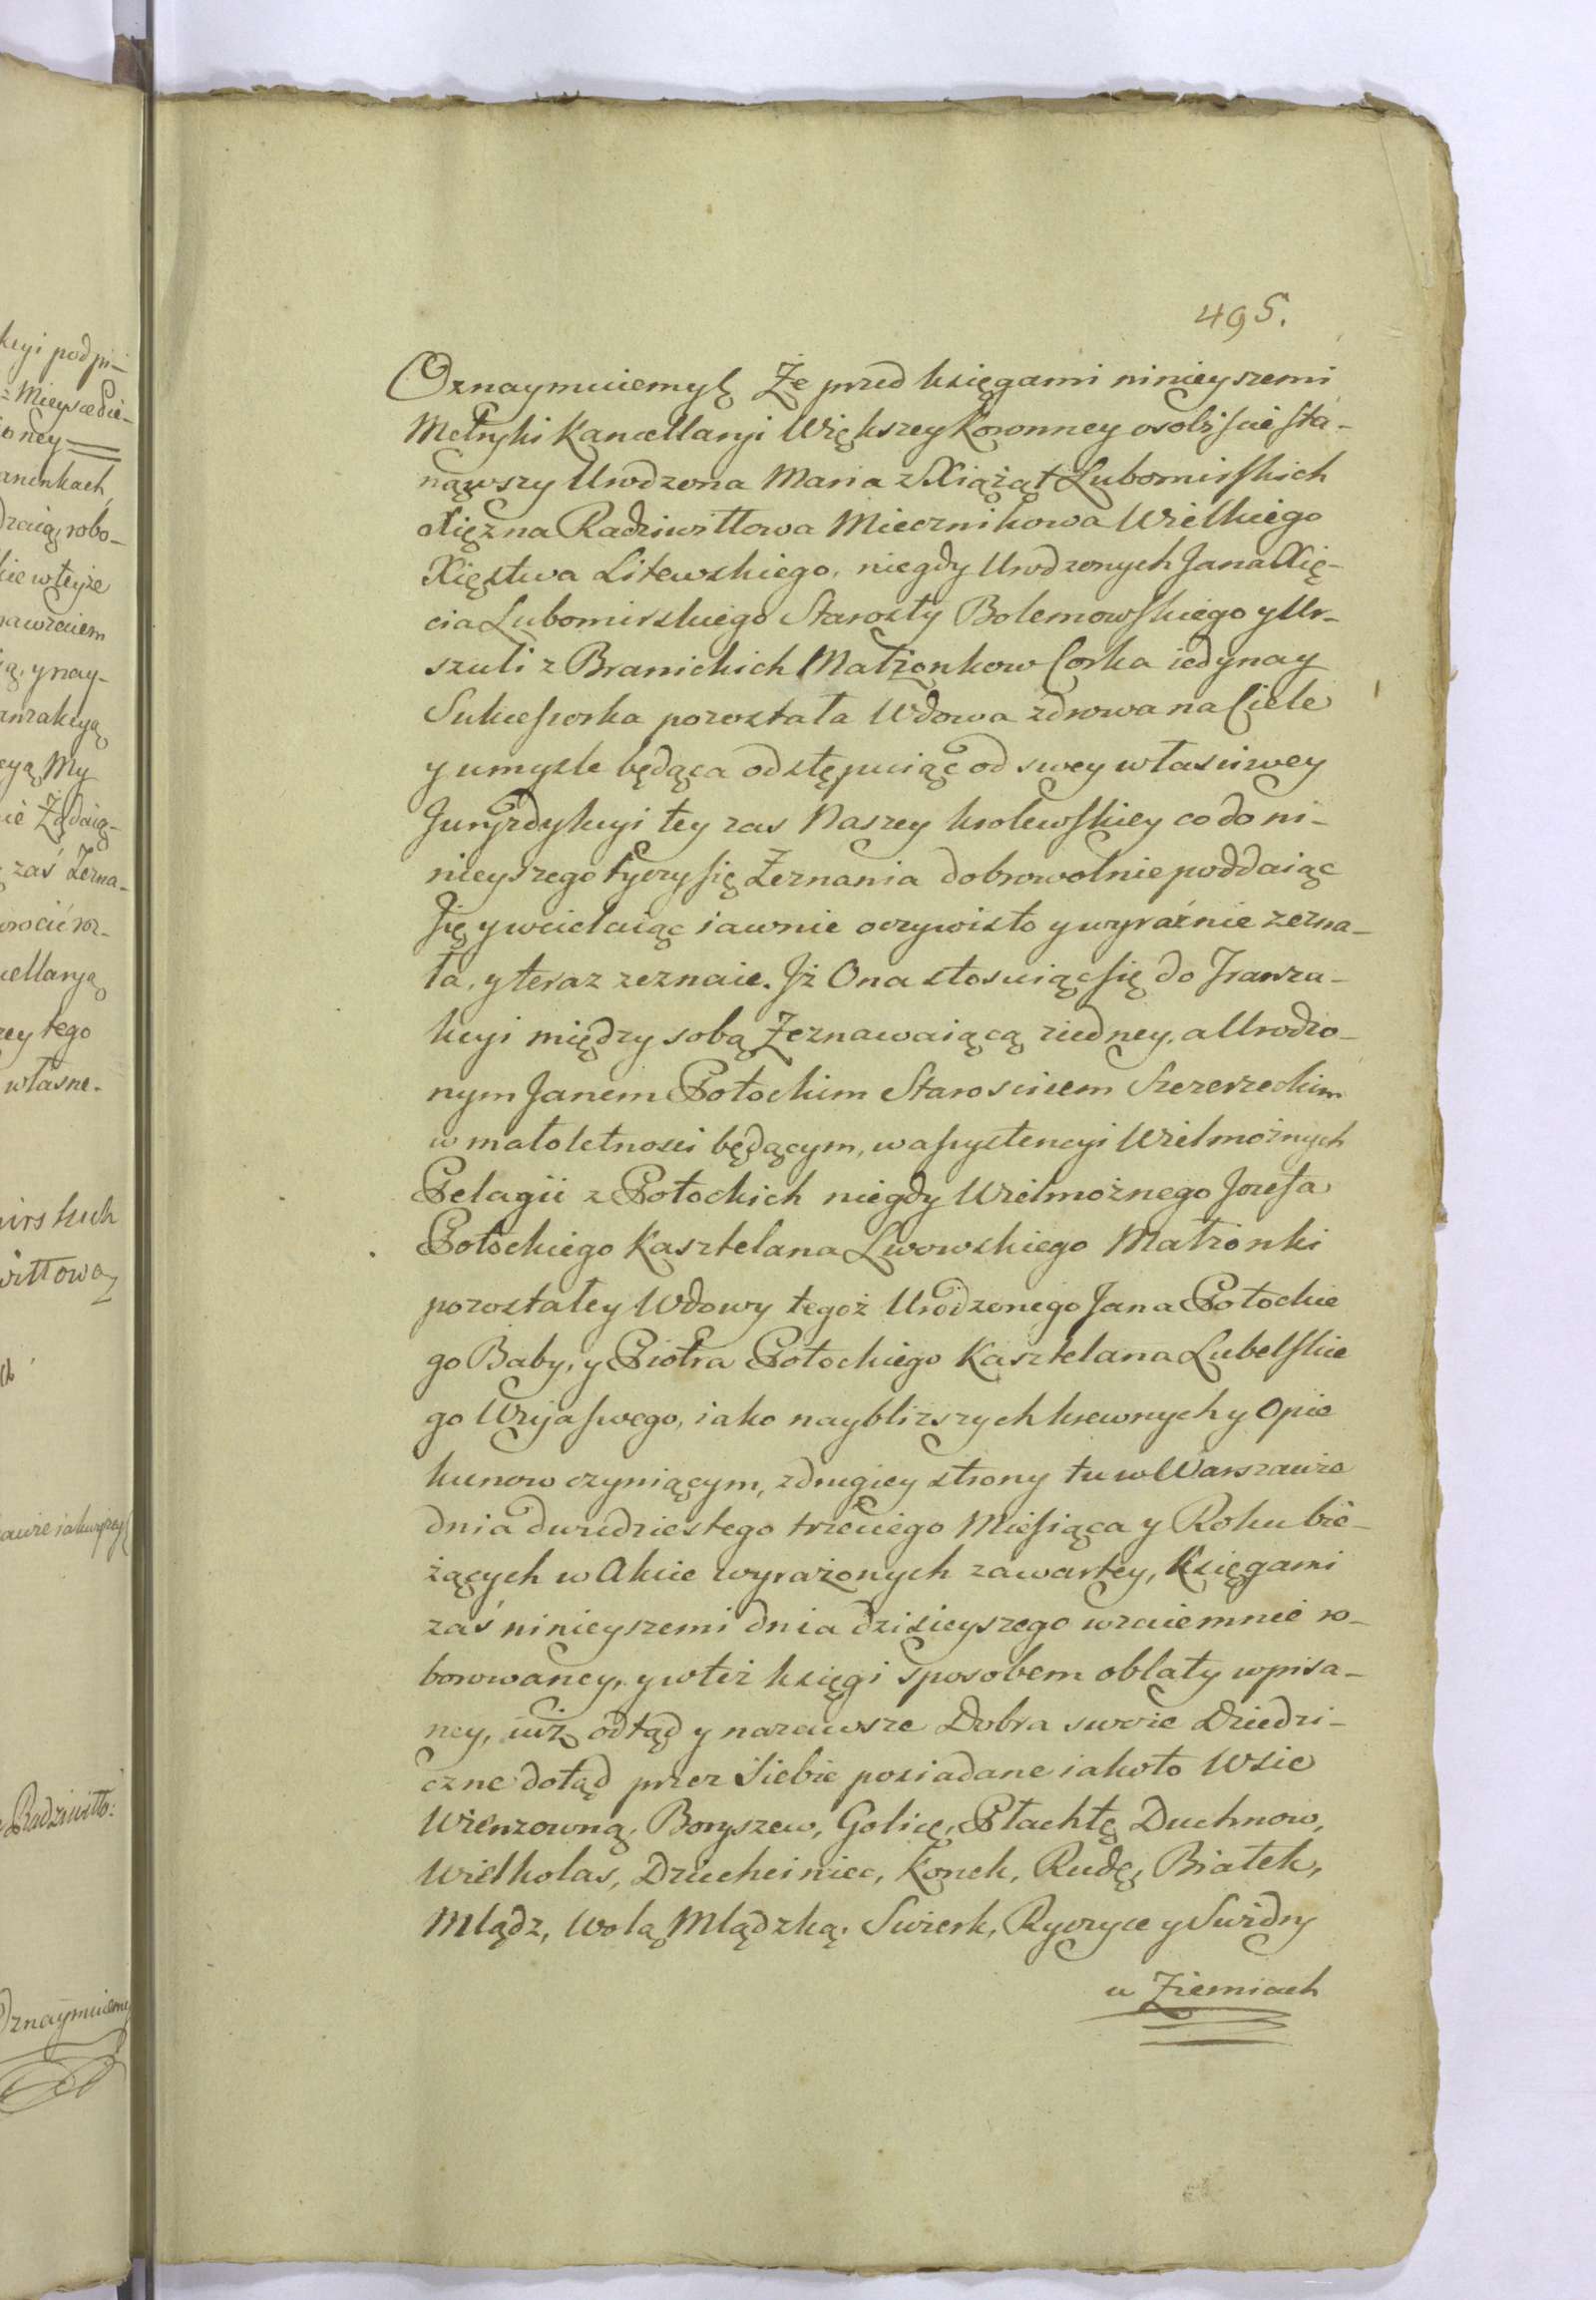 495.
Oznaymuiemy Że przed księgami ninieyszemi
Metryki Kancellaryi Większey Koronney osobiście sta-
nąwszy Urodzona Maria z Xiążąt Lubomirskich
Xiężna Radziwiłłowa Miecznikowa Wielkiego
Xięstwa Litewskiego, niegdy Urodzonych Jana Xię-
cia Lubomirskiego Starosty Bolemowskiego y Ur-
szuli z Branickich Małżonkow Corka iedyna y
Sukcessorka pozostała Wdowa zdrowa na Ciele
y umysle będąca odstępuiąc od swey własciwey
Juryzdykcyi tey zas Naszey krolewskiey co do ni-
nieyszego tyczy się Zeznania dobrowolnie poddaiąc
się y wcielaiąc iawnie oczywisto y wyraźnie zezna-
ła, y teraz zeznaie. Jż Ona stosuiąc się do Tranza-
kcyi między sobą Zeznawaiącą ziedney, a Urodzo-
nym Janem Potockim Starościcem Szczerzeckim
w małoletnosci będącym, w assystencyi Wielmożnych
Pelagii z Potockich niegdy Wielmożnego Jozefa
Potockiego Kasztelana Lwowskiego Małżonki
pozostałey Wdowy tegoż Urodzonego Jana Potockie
go Baby, y Piotra Potockiego Kasztelana Lubelskie
go Wuja swego, iako naybliższych krewnych y Opie
kunow czyniącym, zdrugiey strony tu w Warszawie
dnia dwudziestego trzeciego Miesiąca y Roku bie-
żących w Akcie wyrażonych zawartey, Księgami
zaś ninieyszemi dnia dzisieyszego wzaiemnie ro-
borowaney, y wteż księgi sposobem oblaty wpisa-
ney, iuż odtąd y nazawsze Dobra swoie Dziedzi-
czne dotąd przez Siebie posiadane iakoto Wsie
Wienzowną, Boryszew, Golicę, Płachtę Duchnow,
Wielkolas, Dziechciniec, Konek, Rudę, Białek,
Mlądz, Wolą Mlądzką, Swierk, Ryczyce y Swidry
w Ziemiach